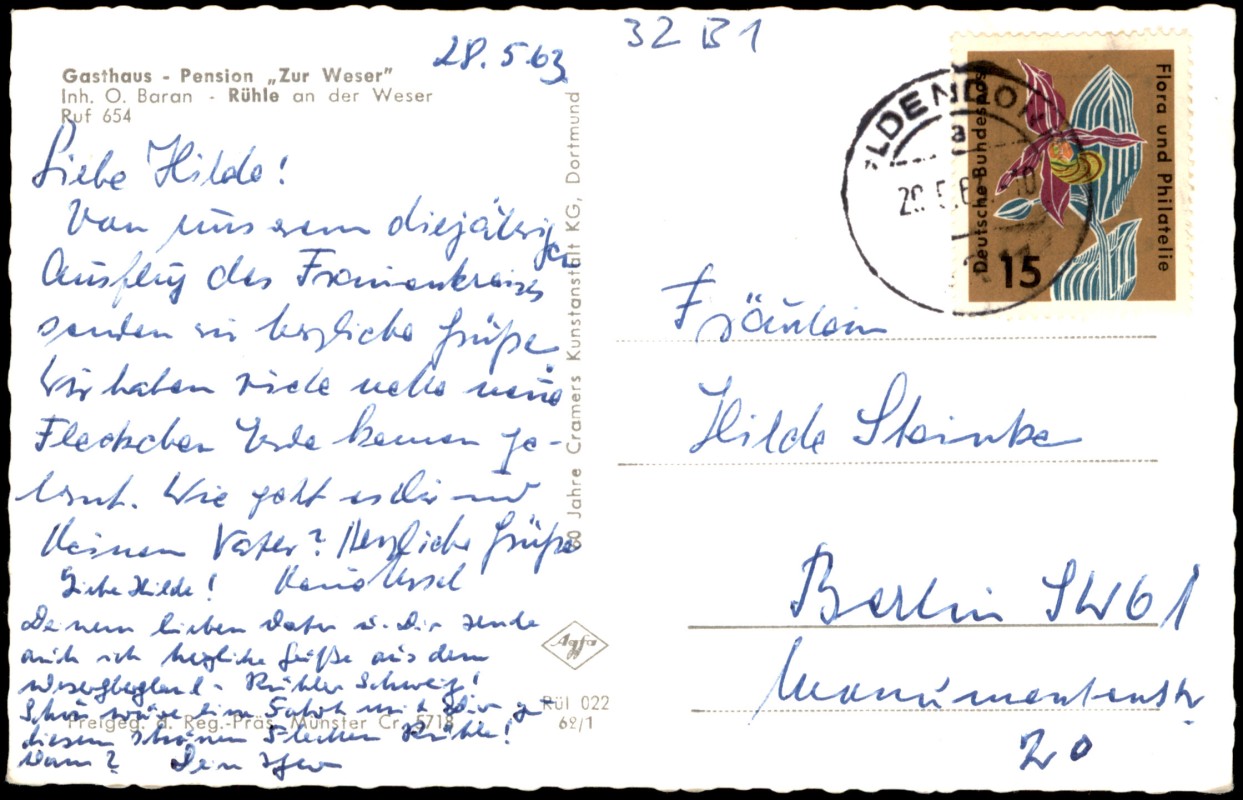 28.5.63
32 B1
Gasthaus - Pension „Zur Weser”
Inh. O. Baran - Rühle an der Weser
Ruf 654
Liebe Hilde!
Von unserem diesjährigen
Ausflug des Frauenkreises
senden wir herzliche Grüße.
Wir haben viele nette neue
Fleckchen Erde kennen ge-
lernt. Wie geht es Dir und
Deinem Vater? Herzliche Grüße
Deine Ursel
Liebe Hilde!
Deinem lieben Vater u. Dir sende
auch ich herzliche Grüße aus dem
Weserbergland - Rühler Schweiz!
Schön wäre eine Fahrt mit Dir zu
diesem schönen Flecken Rühle!
Wann? Dein
Freigeg. d. Reg.-Präs. Münster Cr. 5718
Rül 022
62/1
Agfa
60 Jahre Cramers Kunstanstalt KG, Dortmund
Deutsche Bundespost
Flora und Philatelie
15
LDENDO
a
Fräulein
Hilde Steinke
Berlin SW61
Monumentenstr
20